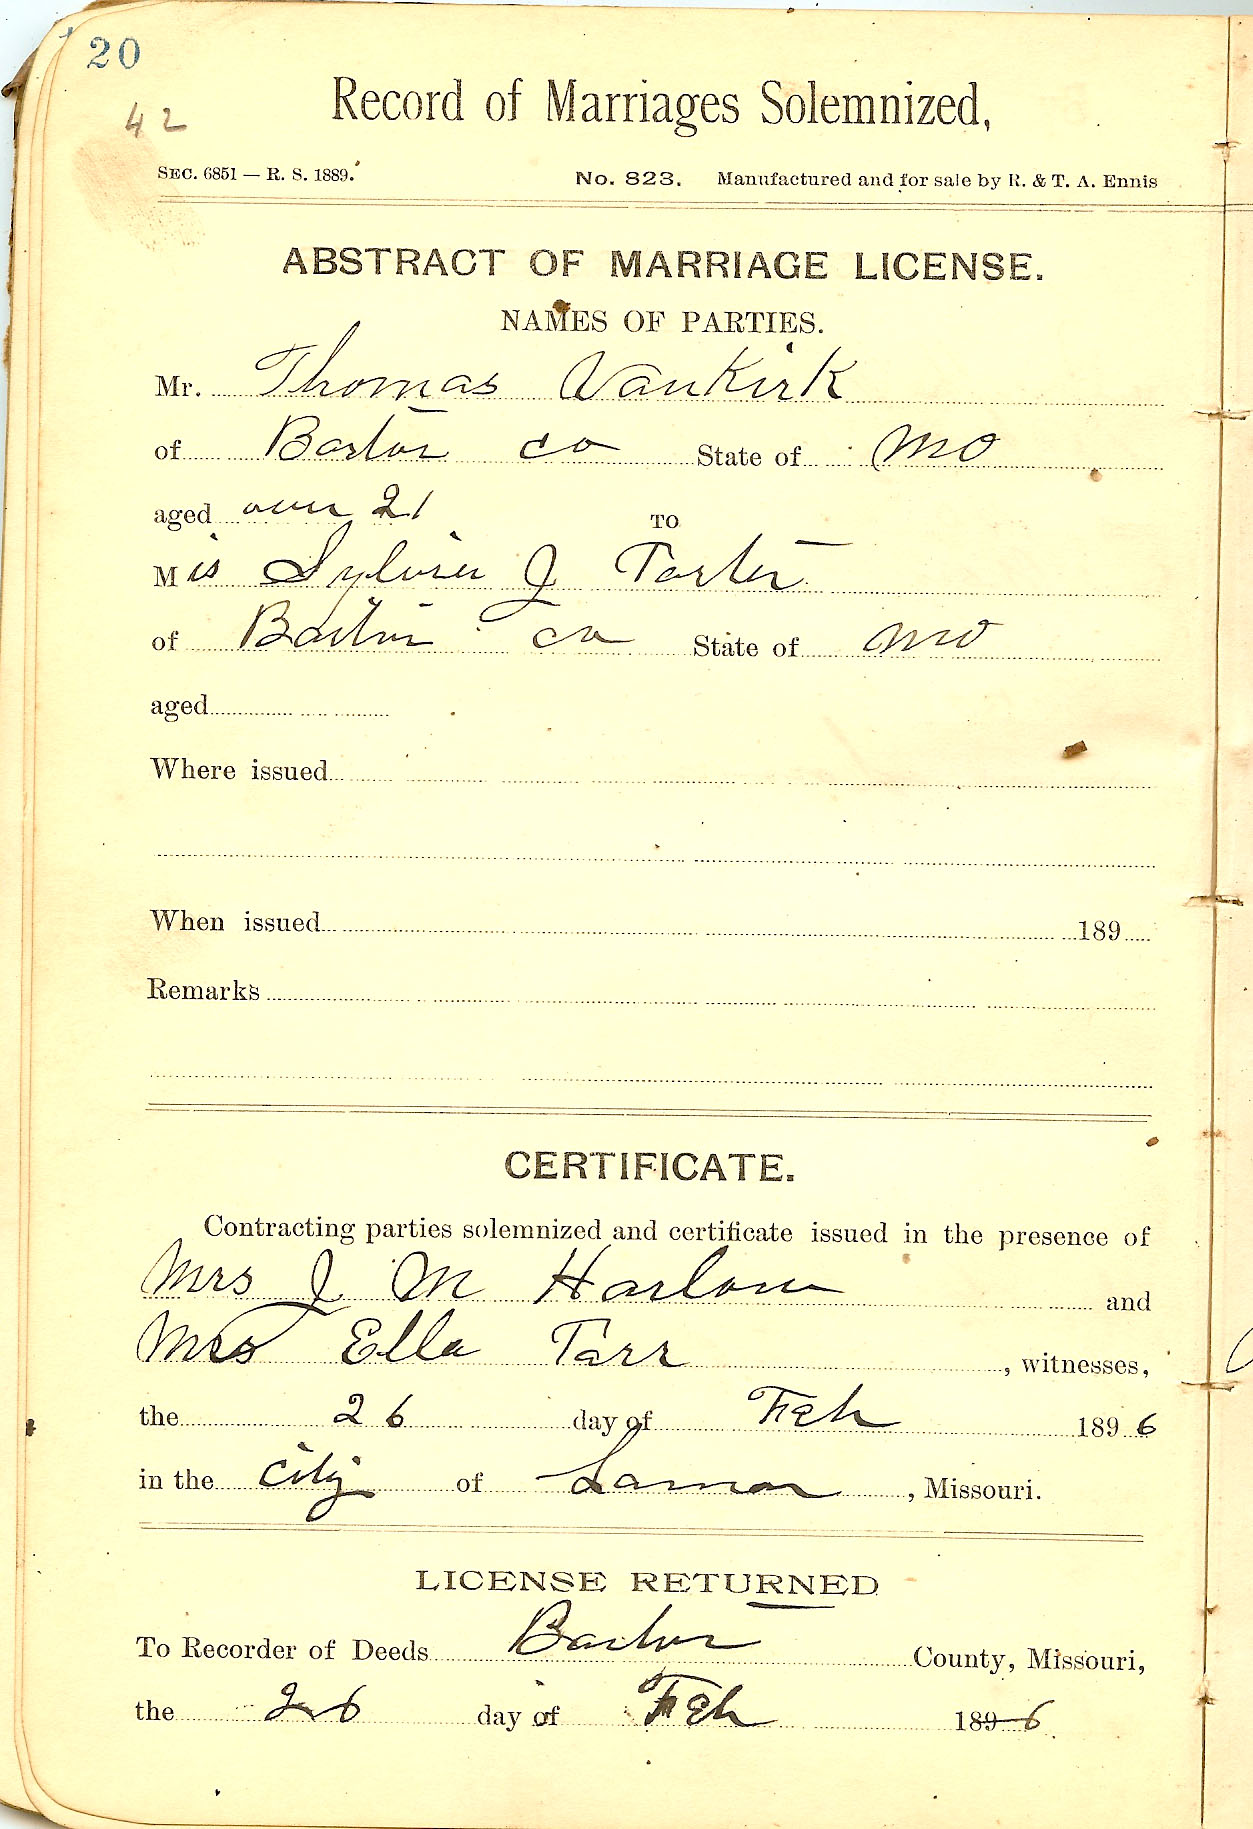 20
42
Record of Marriages Solemnized,
SEC. 6851 — R. S. 1889. No. 823. Manufactured and for sale by R. & T. A. Ennis
ABSTRACT OF MARRIAGE LICENSE.
NAMES OF PARTIES.
Mr. Thomas VanKirk
of Barton co State of MO
aged over 21 TO
Mis Sylvia J Tarter
of Barton co State of MO
aged
Where issued
When issued 189
Remarks
CERTIFICATE.
Contracting parties solemnized and certificate issued in the presence of
Mrs J M Harlow and
Mrs Ella Tarr, witnesses,
the 26 day of Feb 1896
in the City of Lamar, Missouri.
LICENSE RETURNED
To Recorder of Deeds Barton County, Missouri,
the 26 day of Feb 1896